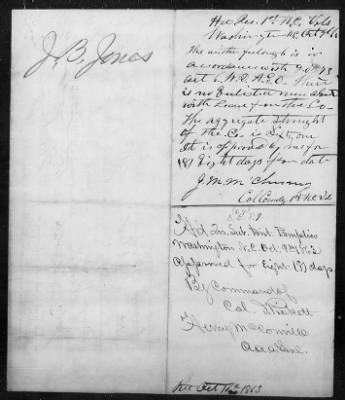 J. B. Jones
Hd Qrs. 1st N.C. Vols
Washington NC Oct 9th 63
The within furlough is in
accordance with
There
is no Enlisted men absent
with Leave from the Co.
The aggregate strength
of the Co. is Sixty one
It is approved by me for
(8) Eight days from date
J. M. McChesney
Lt Col Comdg 1st NC Vol
Hd Qrs. Sub. Dist. Pamplico
Washington N.C. Oct. 9th 1863
Approved for Eight (8) days
By Command of
Col.
Henry McConville
A.A.A. Genl.
Rec Oct 1863